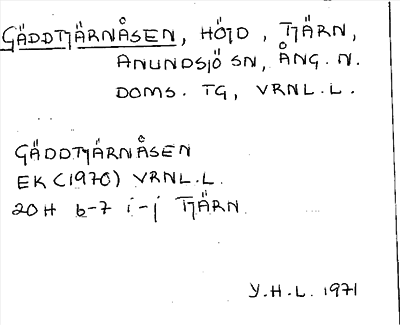 GÄDDTJÄRNÅSEN, HÖJD, TJÄRN,
ANUNDSJÖ SN, ÅNG. N.
DOMS. TG, VRNL.L.
GÄDDTJÄRNÅSEN
EK (1970) VRNL.L.
20H 6-7 i-j TJÄRN
Y.H.L. 1971